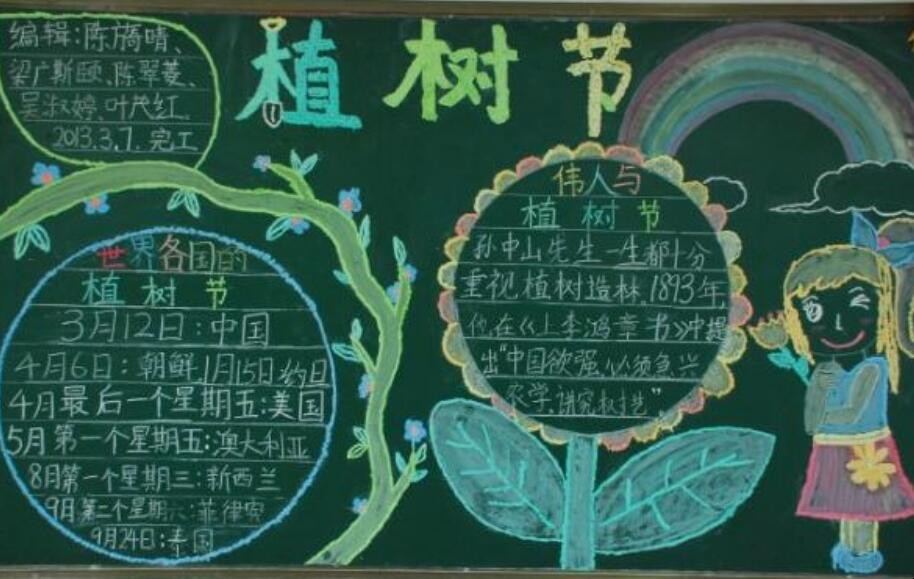 编辑:陈旖晴、
梁广斯颐、陈翠菱、
吴淑婷、叶茂红.
2013.3.7. 完工
植树节
世界各国的
植树节
3月12日:中国
4月6日:朝鲜 1月15日约旦
4月最后一个星期五:美国
5月第一个星期五:澳大利亚
8月第一个星期三:新西兰
9月第二个星期六:菲律宾
9月24日:泰国
伟人与
植树节
孙中山先生一生都十分
重视植树造林.1893年
他在《上李鸿章书》中提
出“中国欲强,必须急兴
农学,讲究树艺”.